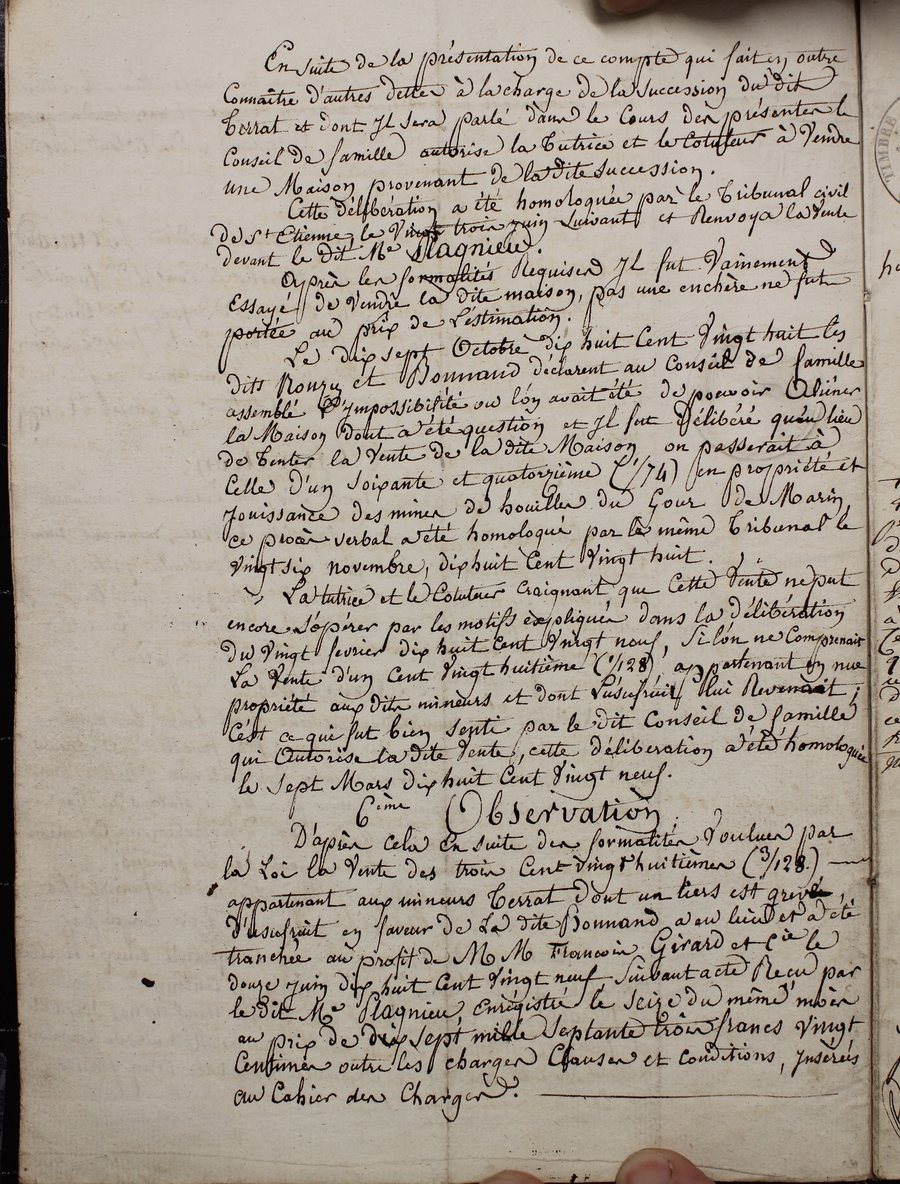 En suite de la présentation de ce compte qui fait en outre
Connaître d'autres dettes à la charge de la succession du dit
Terrat et dont Il sera parlé dans le Cours des présentes le
Conseil de famille autorise la Tutrice et le Cotuteur à Vendre
une Maison provenant de la dite succession.
Cette délibération a été homologuée par le Tribunal civil
de St Etienne, le Vingt trois Juin Suivant et Renvoya la Vente
devant le dit Me Plagnieu.
Après les formalités Requises Il fut Vainement
Essayé de Vendre la dite maison, pas une enchère ne fut
portée au prix de L'estimation.
Le dix sept Octobre dix huit Cent Vingt huit les
dits Rouzy et Bonnand déclarent au Conseil de famille
assemblé L'impossibilité ou l'on avait été de pouvoir Aliéner
la Maison dont a été question et Il fut Délibéré qu'au lieu
de Tenter la Vente de la dite Maison, on passerait à
Celle d'un Soixante et quatorzième (1/74) en propriété et
Jouissance des mines de houilles du Gour de Marin
ce procès verbal a été homologué par le même Tribunal le
Vingt six novembre, dix huit Cent Vingt huit.
La tutrice et le Cotuteur Craignant que Cette Vente ne put
encore S'opérer par les motifs expliqués dans la délibération
du Vingt fevrier dix huit Cent Vingt neuf, Si l'on ne Comprenait
La Vente d'un Cent Vingt huitième (1/128) appartenant en nue
propriété aux dits mineurs et dont L'usufruit lui Revenait;
C'est ce qui fut bien Senti par le dit Conseil de famille
qui Autorise la dite Vente, cette déliberation a été homologuée
le Sept Mars dix huit Cent Vingt neuf.
6ème Observation.
D'après cela En suite des formalités Voulues par
la Loi la Vente des trois Cent Vingt huitièmes (3/128.)
appartenant aux mineurs Terrat dont un tiers est grevé
D'usufruit en faveur de La dite Bonnand, a eu lieu et a été
tranchée au profit de M M François Girard et Cie le
douze Juin dix huit Cent Vingt neuf, Suivant acte Reçu par
le dit Me Plagnieu, enrégistré le seize du même mois
au prix de dix sept mille Septante trois francs Vingt
Centimes outre les charges Clauses et conditions, Insérées
au Cahier des Charges.